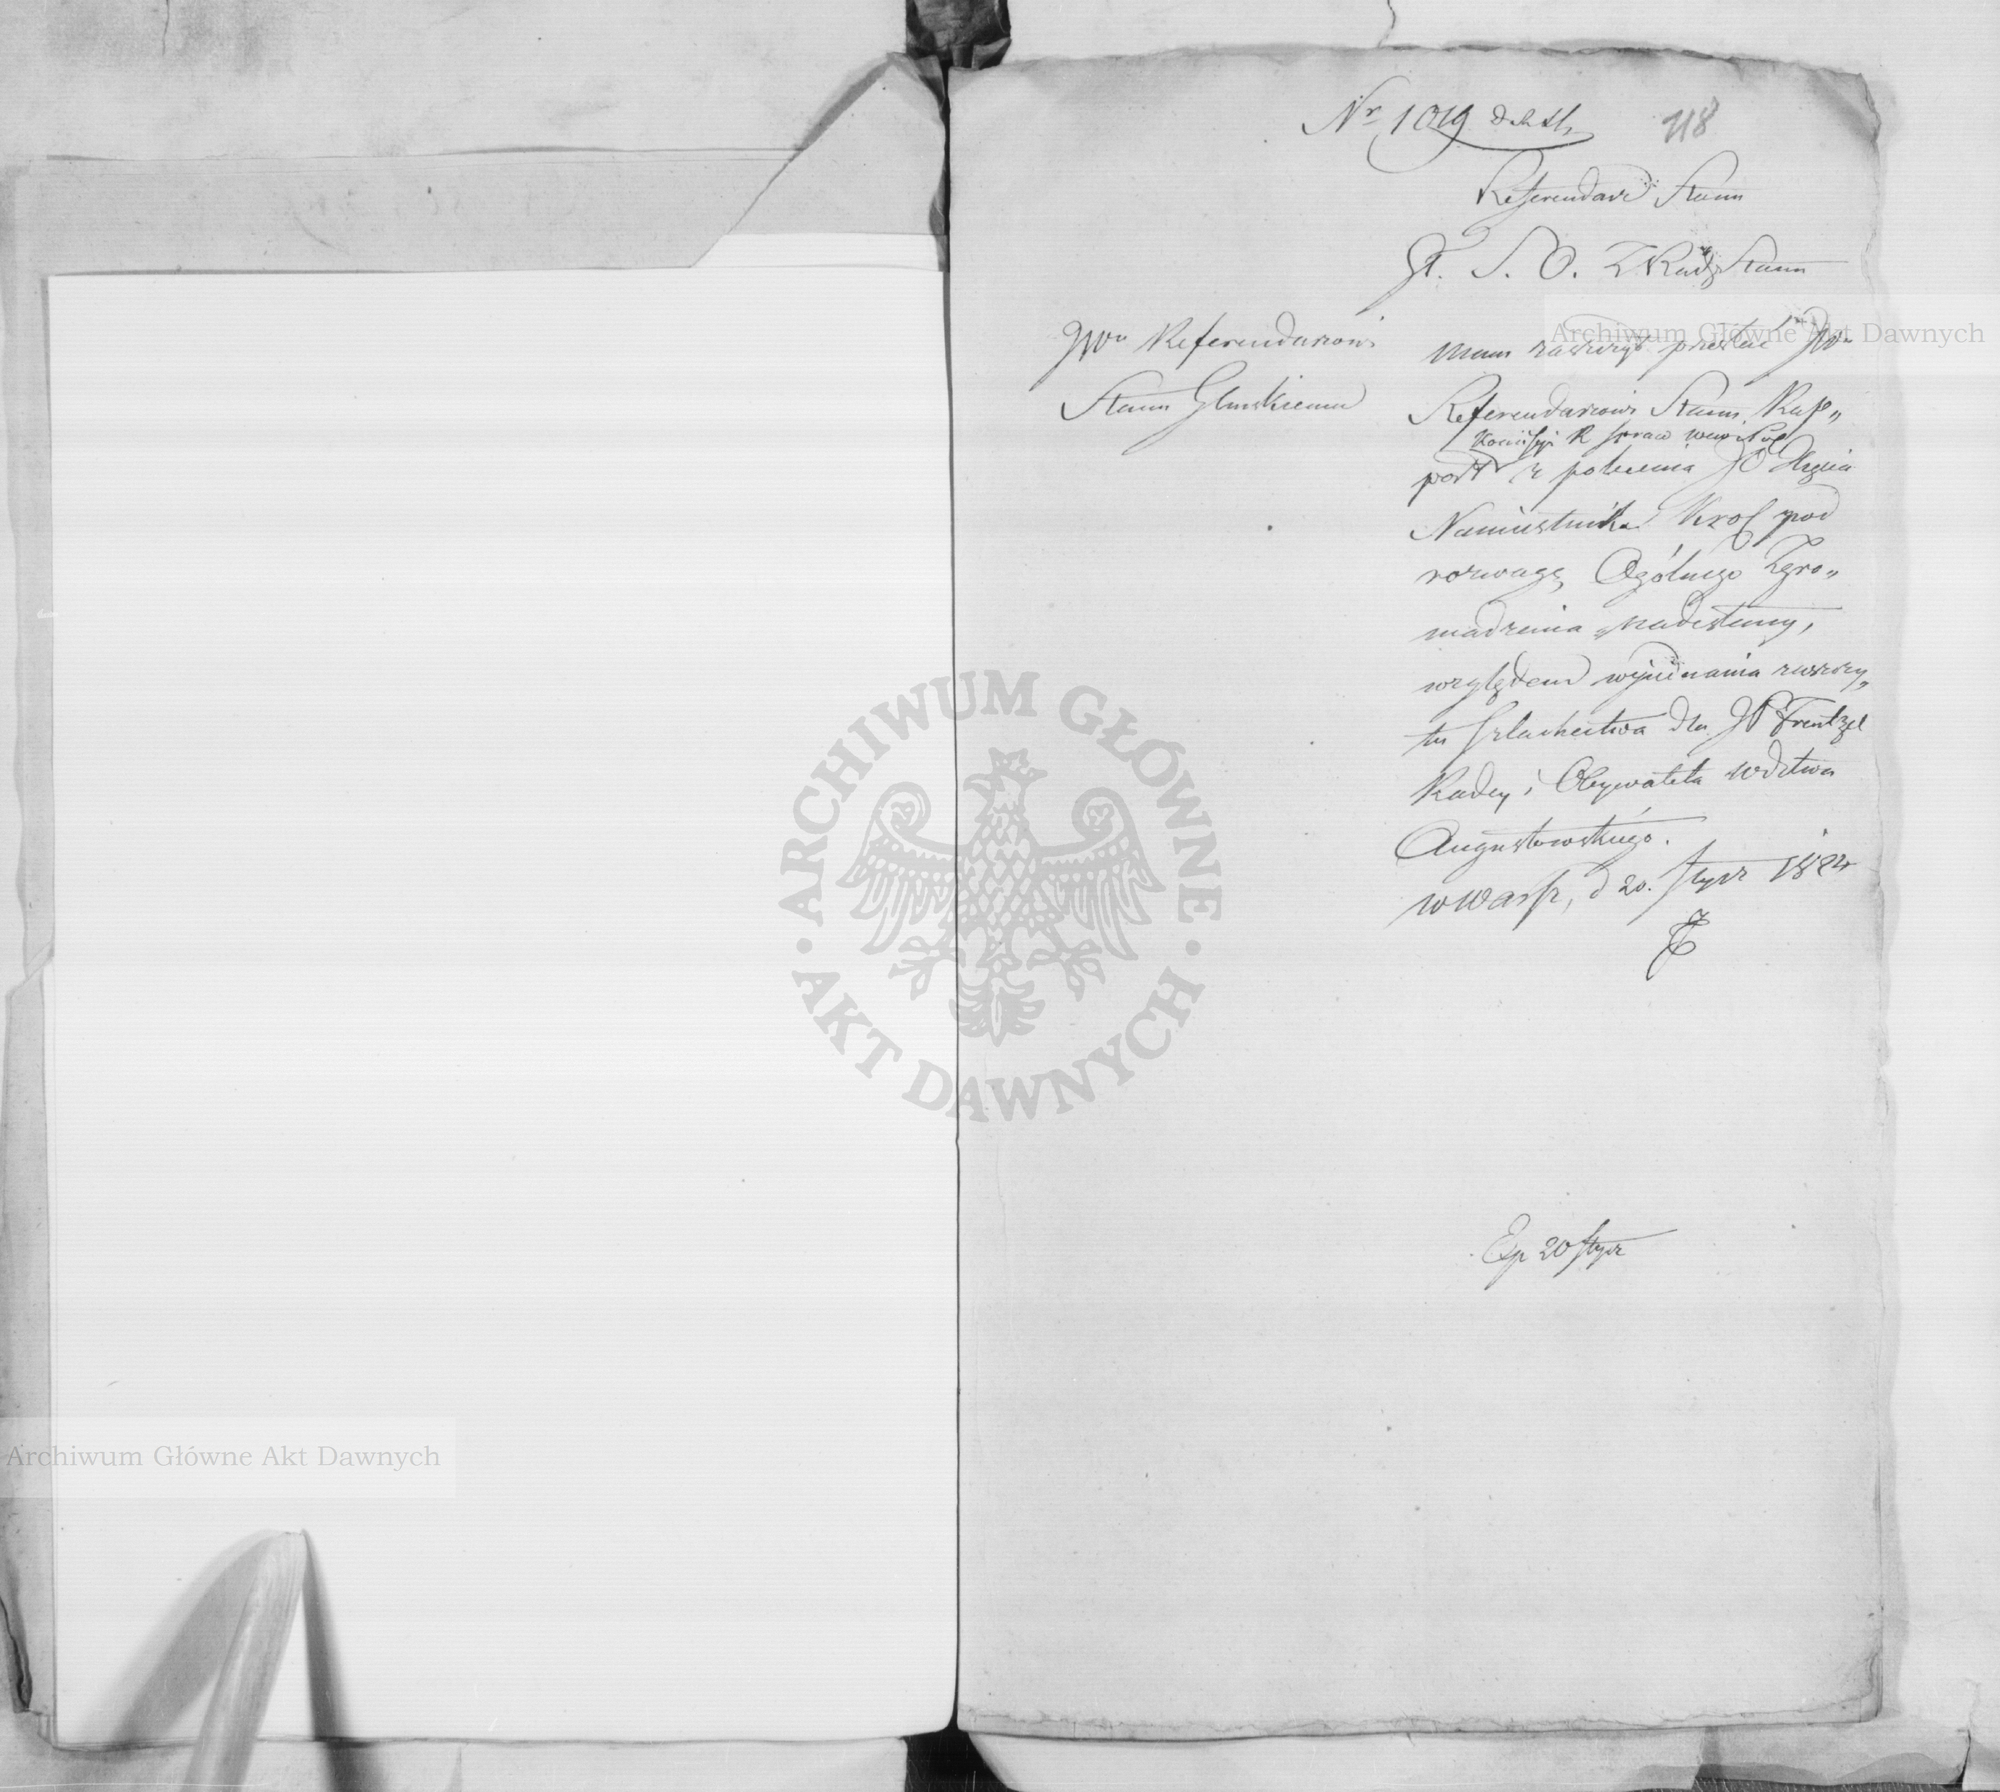 Nr 1019
718
Referendarz Stanu
St. S. O. Z Rady Stanu
JWu Referendarzowi
Stanu Gliński̇emu
mam zaszczyt przesłać JWu
Referendarzowi Stanu Rap„
Kommissyi R spraw wew i Pol
port z polecenia JO Xięcia
Namiestnika Krol pod
rozwagę Ogólnego Zgro„
madzenia nadesłany,
względem wyjednania zaszczy„
tu szlachectwa dla JP Frentzel
Radcy i Obywatela Wdztwa
Augustowskiego.
w Warsz, d 20. Stycz 1824
Exp 20 Stycz
Archiwum Główne Akt Dawnych
ARCHIWUM GŁÓWNE
· AKT DAWNYCH ·
Archiwum Główne Akt Dawnych